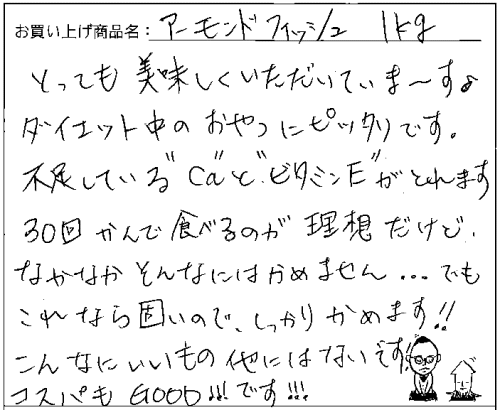 お買い上げ商品名： アーモンドフィッシュ 1kg
とっても美味しくいただいていま〜す♪
ダイエット中のおやつにピッタリです。
不足している"Ca"と"ビタミンE"がとれます
30回かんで食べるのが理想だけど、
なかなかそんなにはかめません…でも
これなら固いので、しっかりかめます!!
こんなにいいもの他にはないです!
コスパもGOOD!!!です!!!